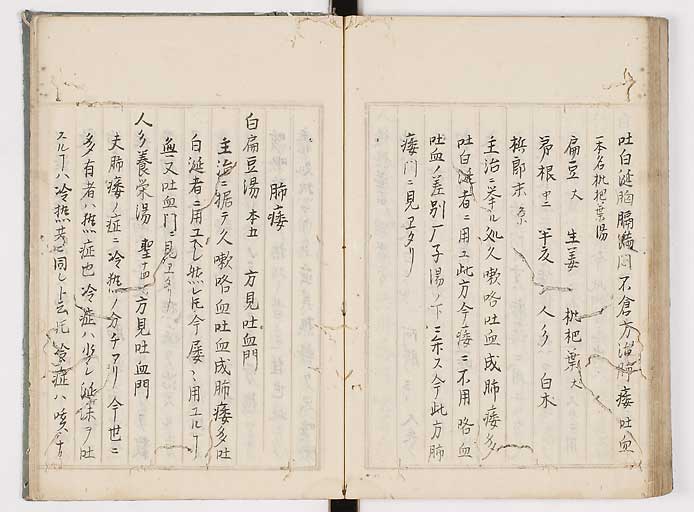 吐白涎胸膈満悶不食方治肺痿吐血
一本名枇杷葉湯
扁豆大 生姜 枇杷葉大
茅根中 半夏 人参 白朮
梹榔末
主治ニ挙ル処久嗽咯血吐血成肺痿多
吐白涎者ニ用ユ此方今痿ニ不用咯血
吐血ノ差別厂子湯ノ下ニ弁ス今此方肺
痿門ニ見ヱタリ
肺痿
白扁豆湯 本五 方見吐血門
主治ニ据テ久嗽咯血吐血成肺痿多吐
白涎者ニ用ユベシ然レ𪜈今屡々用ユルヿ
無又吐血門ニ見ヱタリ
人参養栄湯 聖 方見吐血門
夫肺痿ノ症ニ冷熱ノ分チアリ今世ニ
多有者ハ熱症也冷症ハ少シ涎沫ヲ吐
スルヿハ冷熱共ニ同シト云𪜈冷症ハ咳